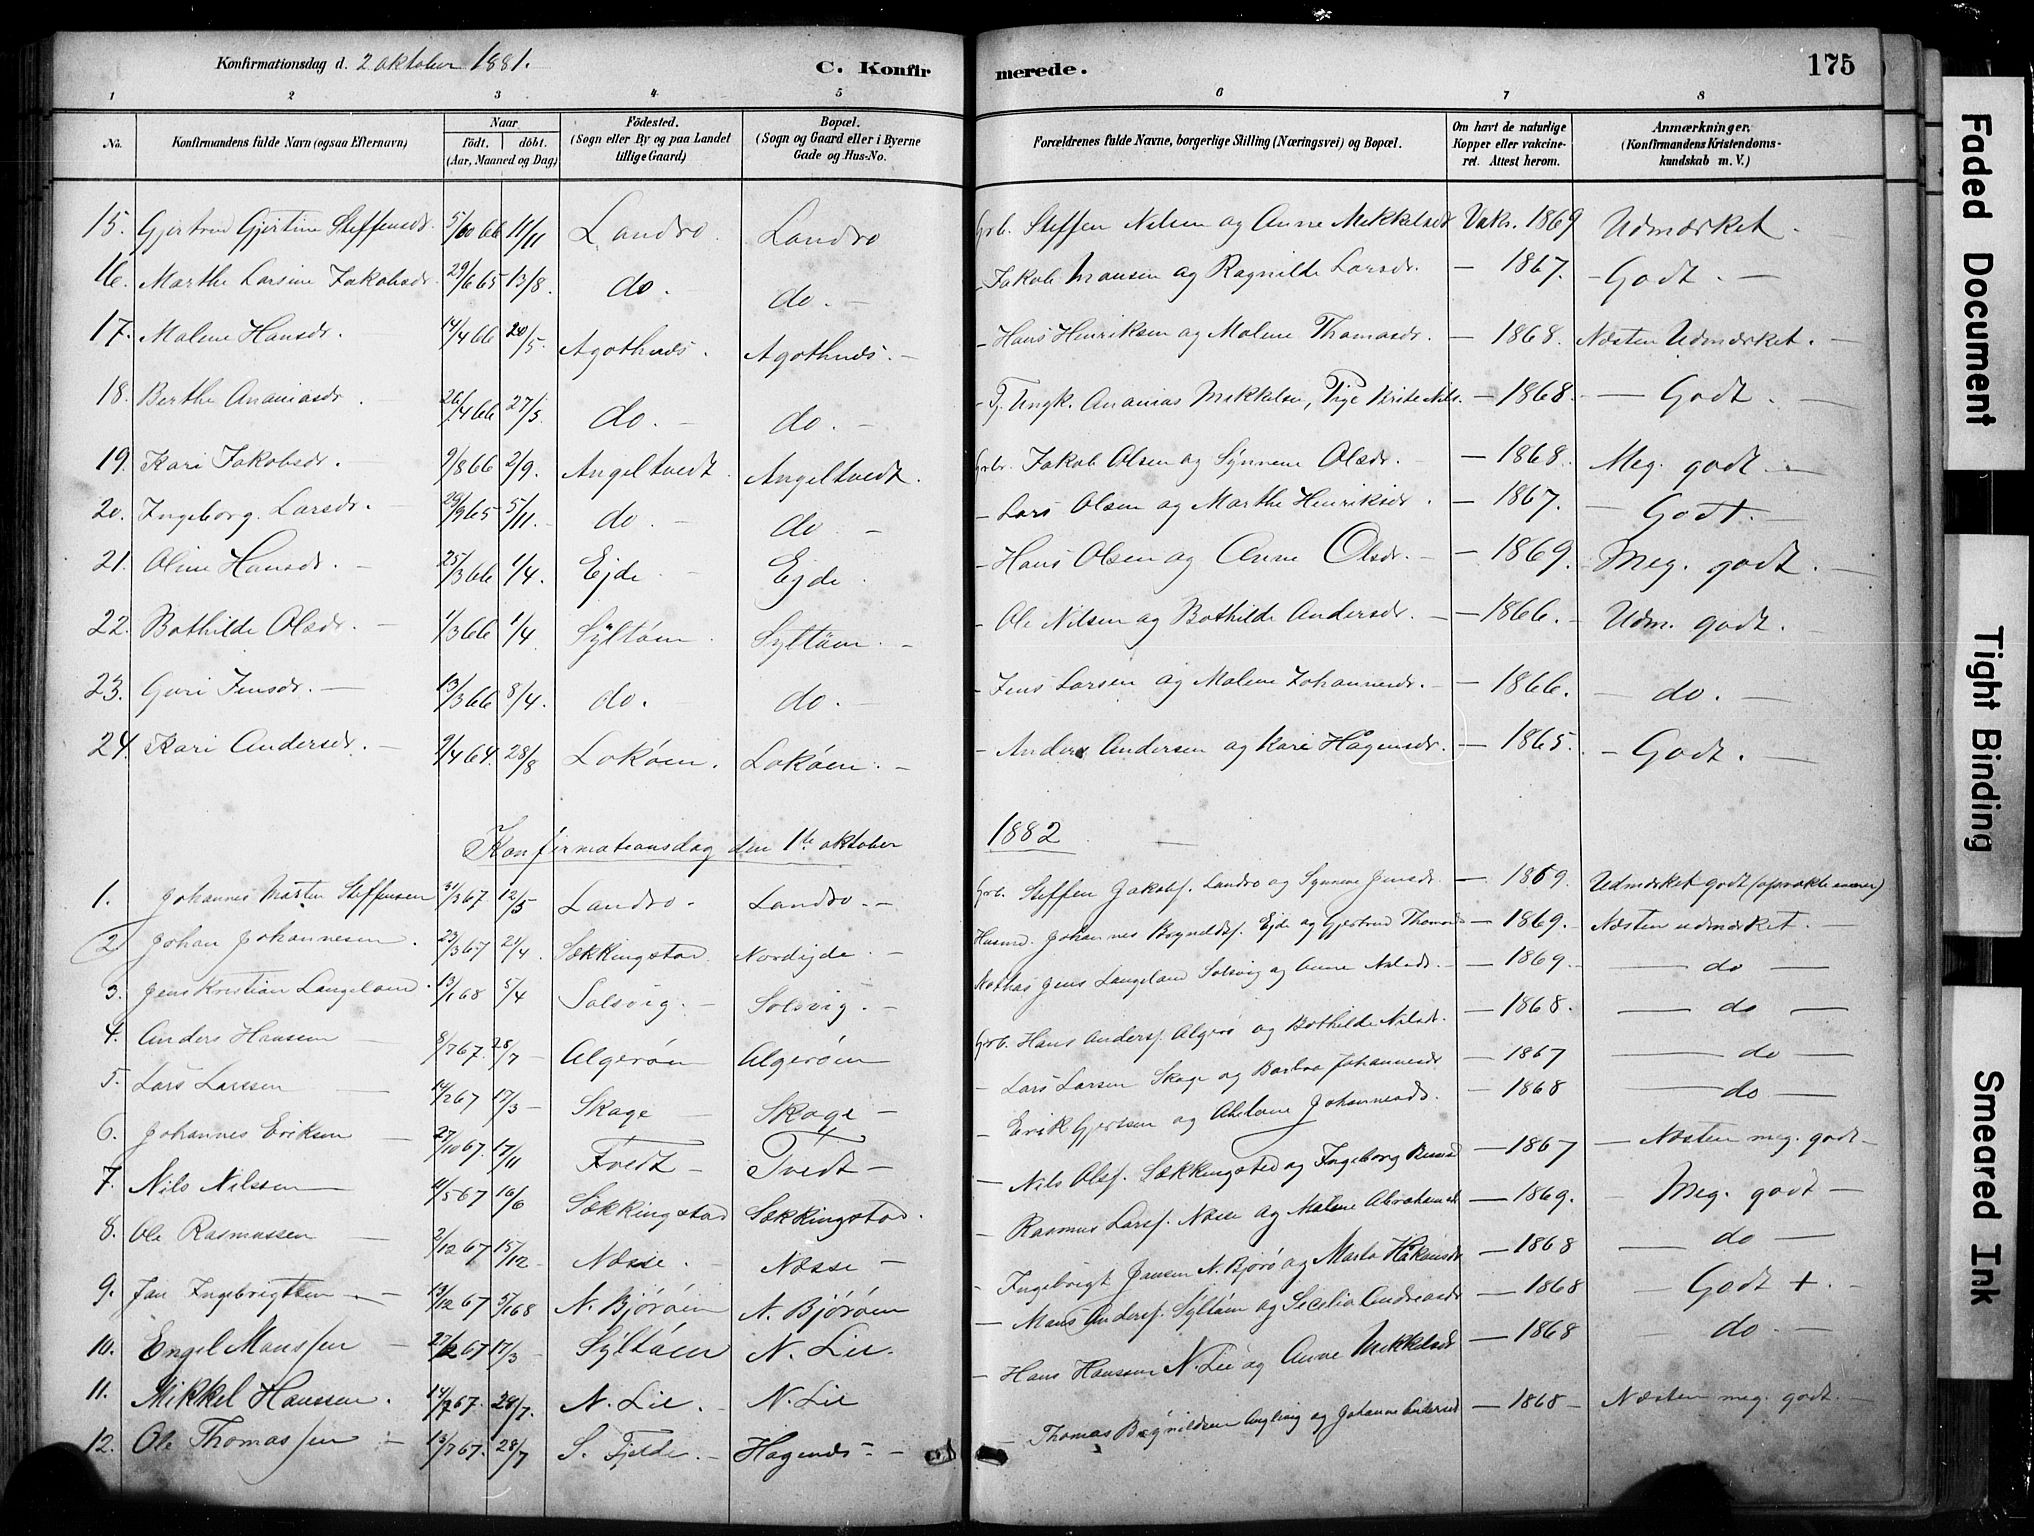 Konfirmationsdag d. 2 oktober 1881. C. Konfirmerede. 175
1 2 3 4 5 6 7 8
No. Konfirmandens fulde Navn (ogsaa Efternavn) Naar født. døbt. (Aar, Maaned og Dag) Fødested. (Sogn eller By og paa Landet tillige Gaard) Bopæl. (Sogn og Gaard eller i Byerne Gade og Hus-No. Forældrenes fulde Navne, borgerlige Stilling (Næringsvei) og Bopæl. Om havt de naturlige Kopper eller vakcineret. Attest herom. Anmærkninger. (Konfirmandens Kristendomskundskab m. V.)
15. Gjertrud Gjertine Steffensdr. 5/10 66 11/11 Landro. Landro Grb. Steffen Nilsen og Anne Mikkelsdr Vakc. 1869 Udmærket. —
16. Marthe Larsine Jakobsdr. 29/6 65 13/8. do. do. — - Jakob Monsen og Ragnilde Larsdr. — 1867. - Godt. —
17. Malene Hansdr. 14/4 66 20/5. Agothnæs. Agothnæs. — - Hans Henriksen og Malene Thomasdr. — 1868. Næsten Udmærket. —
18. Berthe Ananiasdr. 26/4 66 27/5. do. do. — - Ungk. Ananias Mikkelsen, Pige Brite Nils. — 1868. — Godt. —
19. Kari Jakobsdr. 9/8 66 2/9. Angeltvedt. Angeltvedt. Grb. Jakob Olsen og Synneve Olsdr. — 1868. Meg. godt. —
20. Ingeborg Larsdr. 29/9 65 5/11. do. — do. — - Lars Olsen og Marthe Henriksdr. — 1867. — Godt. —
21. Oline Hansdr. — 25/3 66 1/4. Ejde — Ejde. - Hans Olsen og Anne Olsdr. — — 1869. Meg. godt. —
22. Bothilde Olsdr. — 1/3 66 1/4. Syltøen. Syltøen. — - Ole Nilsen og Bothilde Andersdr. — — 1866. — Udm. godt. —
23. Guri Jensdr. — 13/3 66 8/4. do. do. — - Jens Larsen og Malene Johannesdr. — — 1866. — do. —
24. Kari Andersdr. — 9/4 64. 28/8 Lokøen. Lokøen. — - Anders Andersen og Kari Hågensdr. — 1865. — Godt. —
Konfirmationsdag den 1te oktober 1882 —
1. Johannes Morten Steffensen 31/3 67 12/5 Landro. Landro. — Grb. Steffen Jakobs. Landro og Synneve Jensdr. — 1869. Udmærket godt
2 Johan Johannesen. 23/3 67 21/4. Sækkingstad Nordejde. — Husmd. Johannes Ejde og Gjertrud Thomasd — 1869. Næsten udmærket. —
3. Jens Kristian Langeland. 13/1 68 5/4 Solsvig. — Solsvig. — Jens Langeland Solsvig og Anne Nilsdr. — 1869. — do —
4. Anders Hansen — 8/7 67. 28/7 — Algerøen Algerøen Grb. Hans Anders. Algerø og Bothilde Nilsdr. — 1868. — do —
5. Lars Larssen — 14/2 67 17/3 — Skage — Skage — - Lars Larsen Skage og Barbra Johannesdr — 1867 — do —
6. Johannes Eriksen — 27/10 67. 17/11 Tvedt — Tvedt — - Erik Gjertsen og Johannesdr. — 1868 — do —
7. Nils Nilssen — 11/5 67 16/6 Sækkingstad Sækkingstad. — Nils Ols. Sækkingsted og Ingeborg — 1867 — Næsten meg. godt —
8. Ole Rasmussen — 2/12 67 15/12. Næsse. — Næsse — - Rasmus Lars. Næsse og Malene Abrahamsdr — 1869. — Meg. godt —
9. Jan Ingebrigtsen — 13/12 67 5/1 68 N. Bjørøen N. Bjørøen - Ingebrigt Jansen N. Bjørø og Marta Håkonsdr — 1868 — do —
10. Engel Monssen — 27/2 67 17/3 — Syltøen N. Lie. - Mons Anders. Syltøen og Sicelia Andreasdr — 1868 — Godt + . —
11. Mikkel Hanssen. 14/7 67. 28/7. N. Lie. — N. Lie — Hans Hanssen N. Lie og Anne Mikkelsdr — 1868 — do. —
12. Ole Thomassen — 13/7 67. 28/7 S. Fjelde. — Hagenæs — — Thomas Angling og Johanne Andersd — 1868 — Næsten meg. godt. —
Faded Document
Tight Binding
Smeared Ink